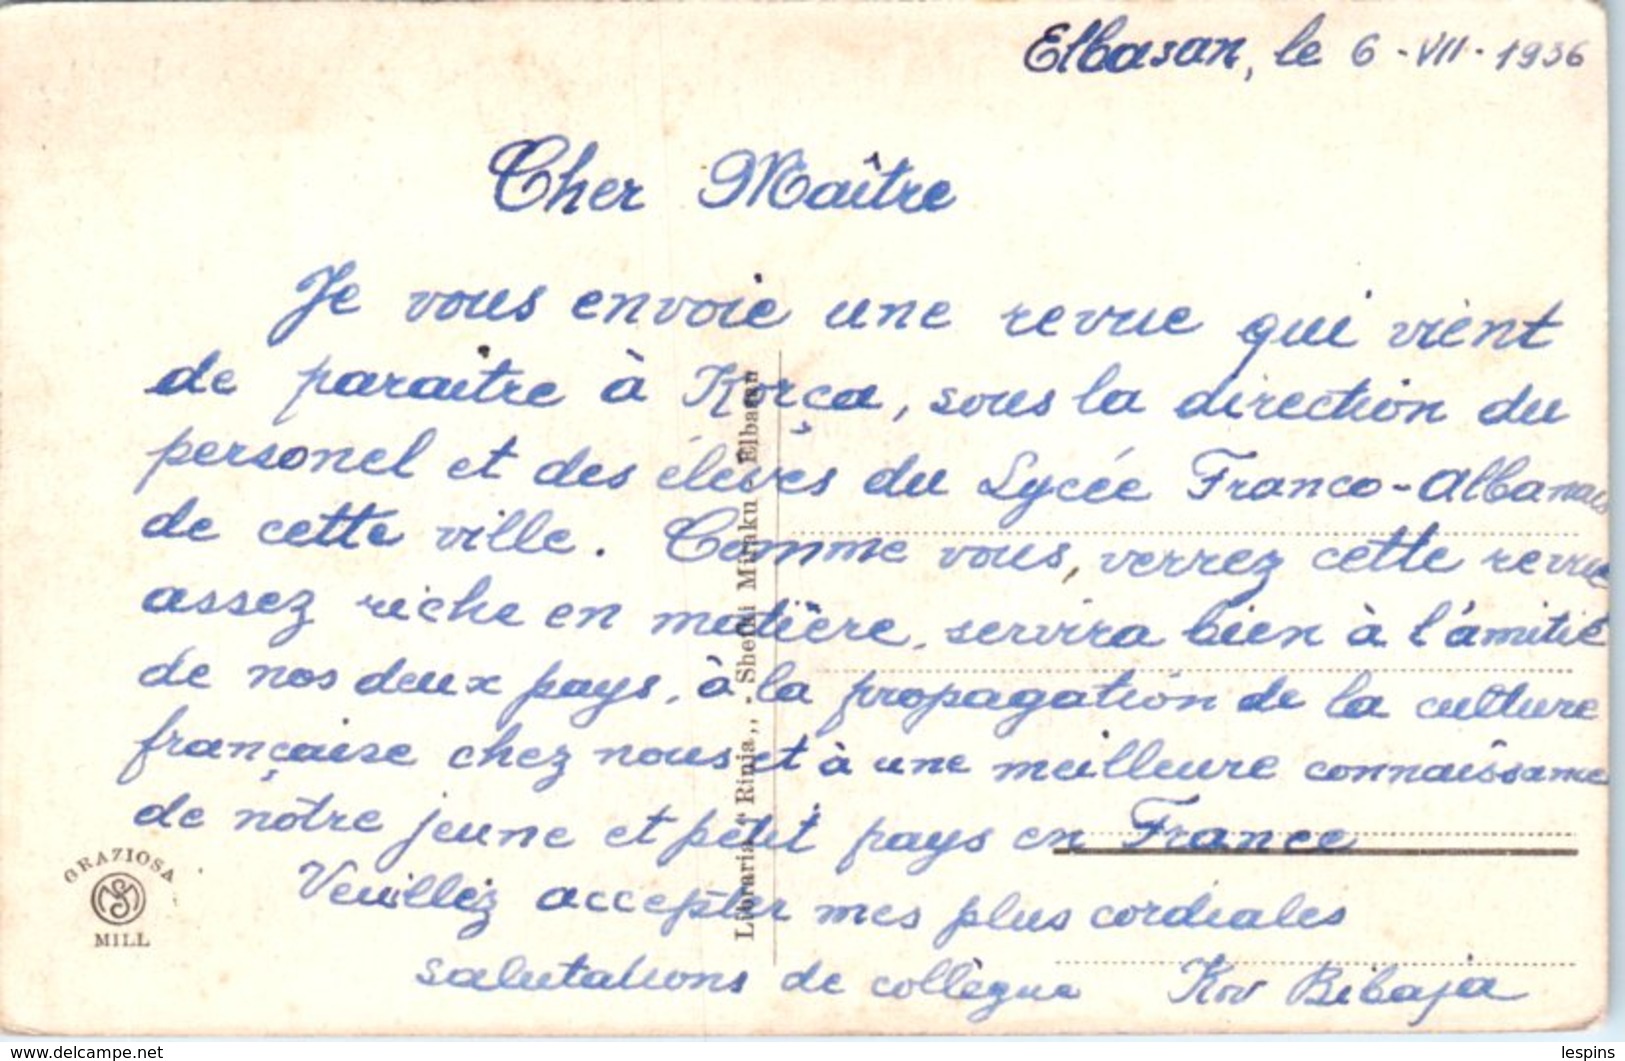 Elbasan, le 6 - VII - 1936
Cher Maître
Je vous envoie une revue qui vient
de paraitre à Korça, sous la direction du
personel et des élèves du Lycée Franco-Albanais
de cette ville. Comme vous, verrez cette revue
assez riche en matière, servira bien à l'amitié
de nos deux pays, à la propagation de la culture
française chez nous et à une meilleure connaissance
de nôtre jeune et petit pays en France
Veuillez accepter mes plus cordiales
salutations de collègue Kov Bibaja
Libraria "Rinia,, - Shefki Muraku - Elbasan
GRAZIOSA
MILL
lespins
www.delcampe.net